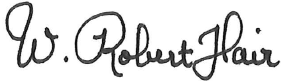 W. Robert Hair